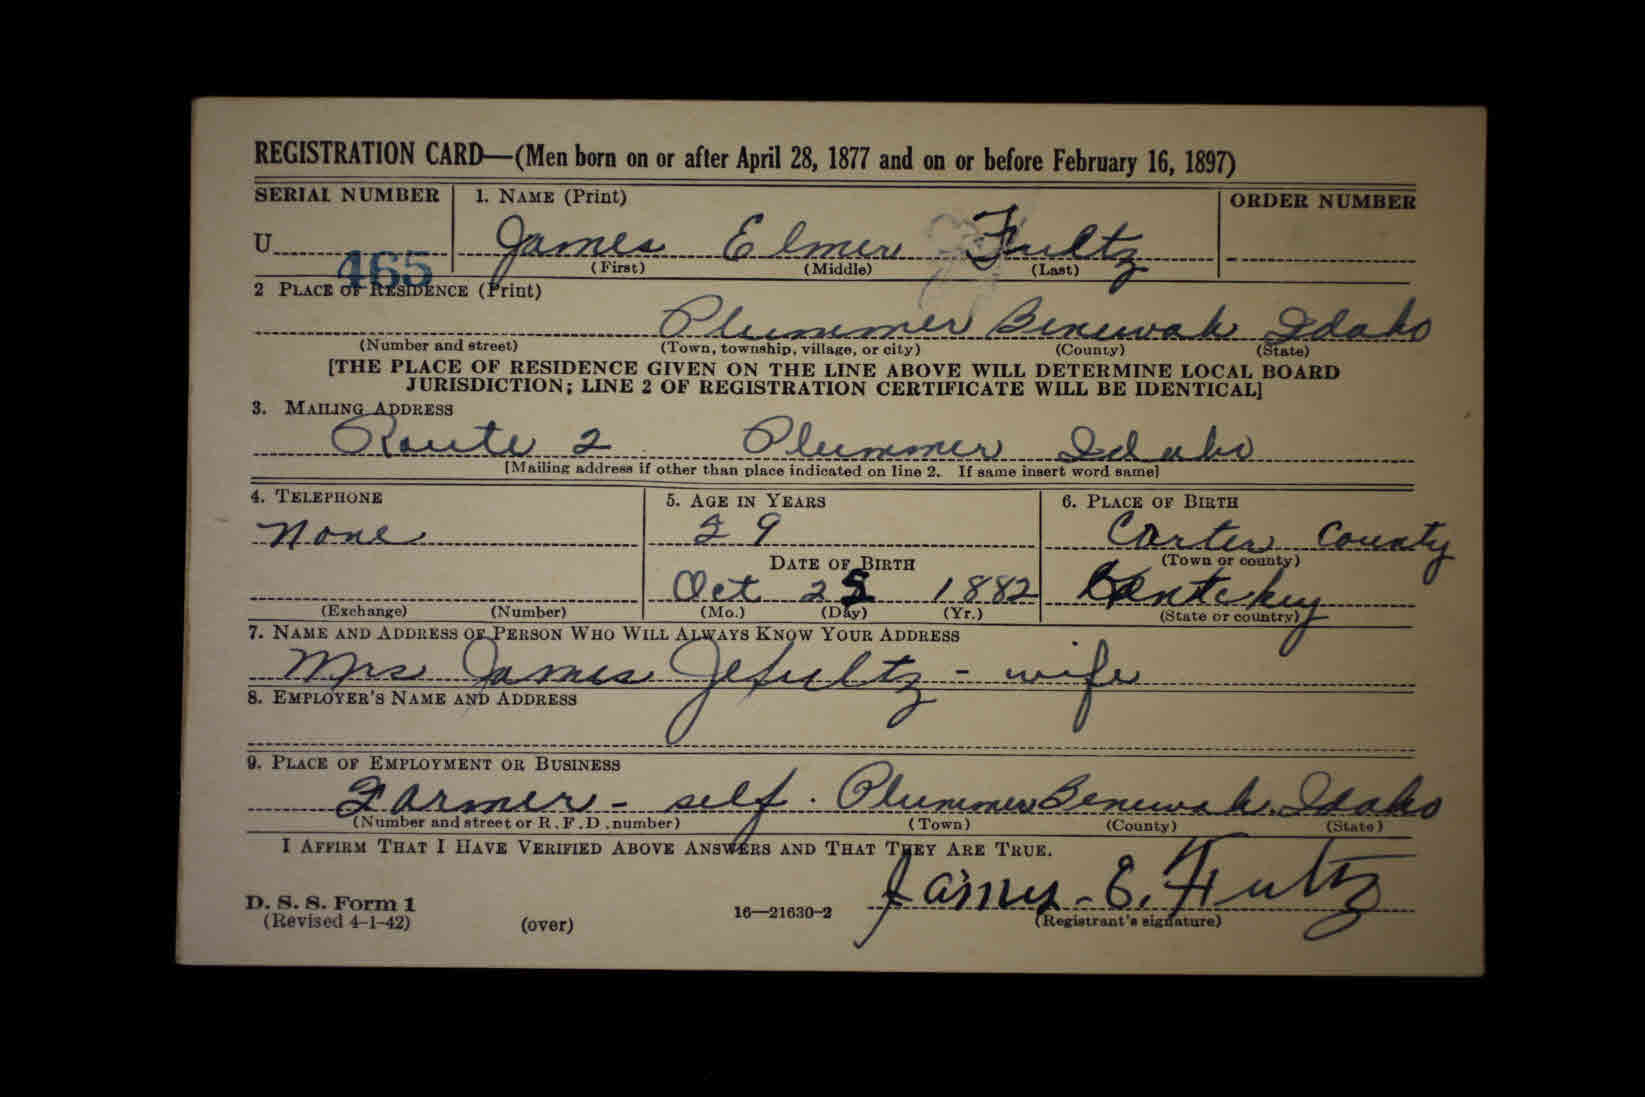 REGISTRATION CARD—(Men born on or after April 28, 1877 and on or before February 16, 1897)
SERIAL NUMBER 1. NAME (Print) ORDER NUMBER
U 465 James Elmer Fultz
(First) (Middle) (Last)
2 PLACE OF RESIDENCE (Print)
Plummer Benewah Idaho
(Number and street) (Town, township, village, or city) (County) (State)
[THE PLACE OF RESIDENCE GIVEN ON THE LINE ABOVE WILL DETERMINE LOCAL BOARD
JURISDICTION; LINE 2 OF REGISTRATION CERTIFICATE WILL BE IDENTICAL]
3. MAILING ADDRESS
Route 2 Plummer Idaho
[Mailing address if other than place indicated on line 2. If same insert word same]
4. TELEPHONE 5. AGE IN YEARS 6. PLACE OF BIRTH
None 59 Carter County
(Town or county)
DATE OF BIRTH
Oct 25 1882 Kentckey
(Exchange) (Number) (Mo.) (Day) (Yr.) (State or country)
7. NAME AND ADDRESS OF PERSON WHO WILL ALWAYS KNOW YOUR ADDRESS
Mrs James Fultz - wife
8. EMPLOYER'S NAME AND ADDRESS
9. PLACE OF EMPLOYMENT OR BUSINESS
Farmer - self. Plummer Benewah. Idaho
(Number and street or R. F. D. number) (Town) (County) (State)
I AFFIRM THAT I HAVE VERIFIED ABOVE ANSWERS AND THAT THEY ARE TRUE.
James - E. Fultz
D. S. S. Form 1
(Revised 4-1-42) (over) 16—21630-2 (Registrant's signature)